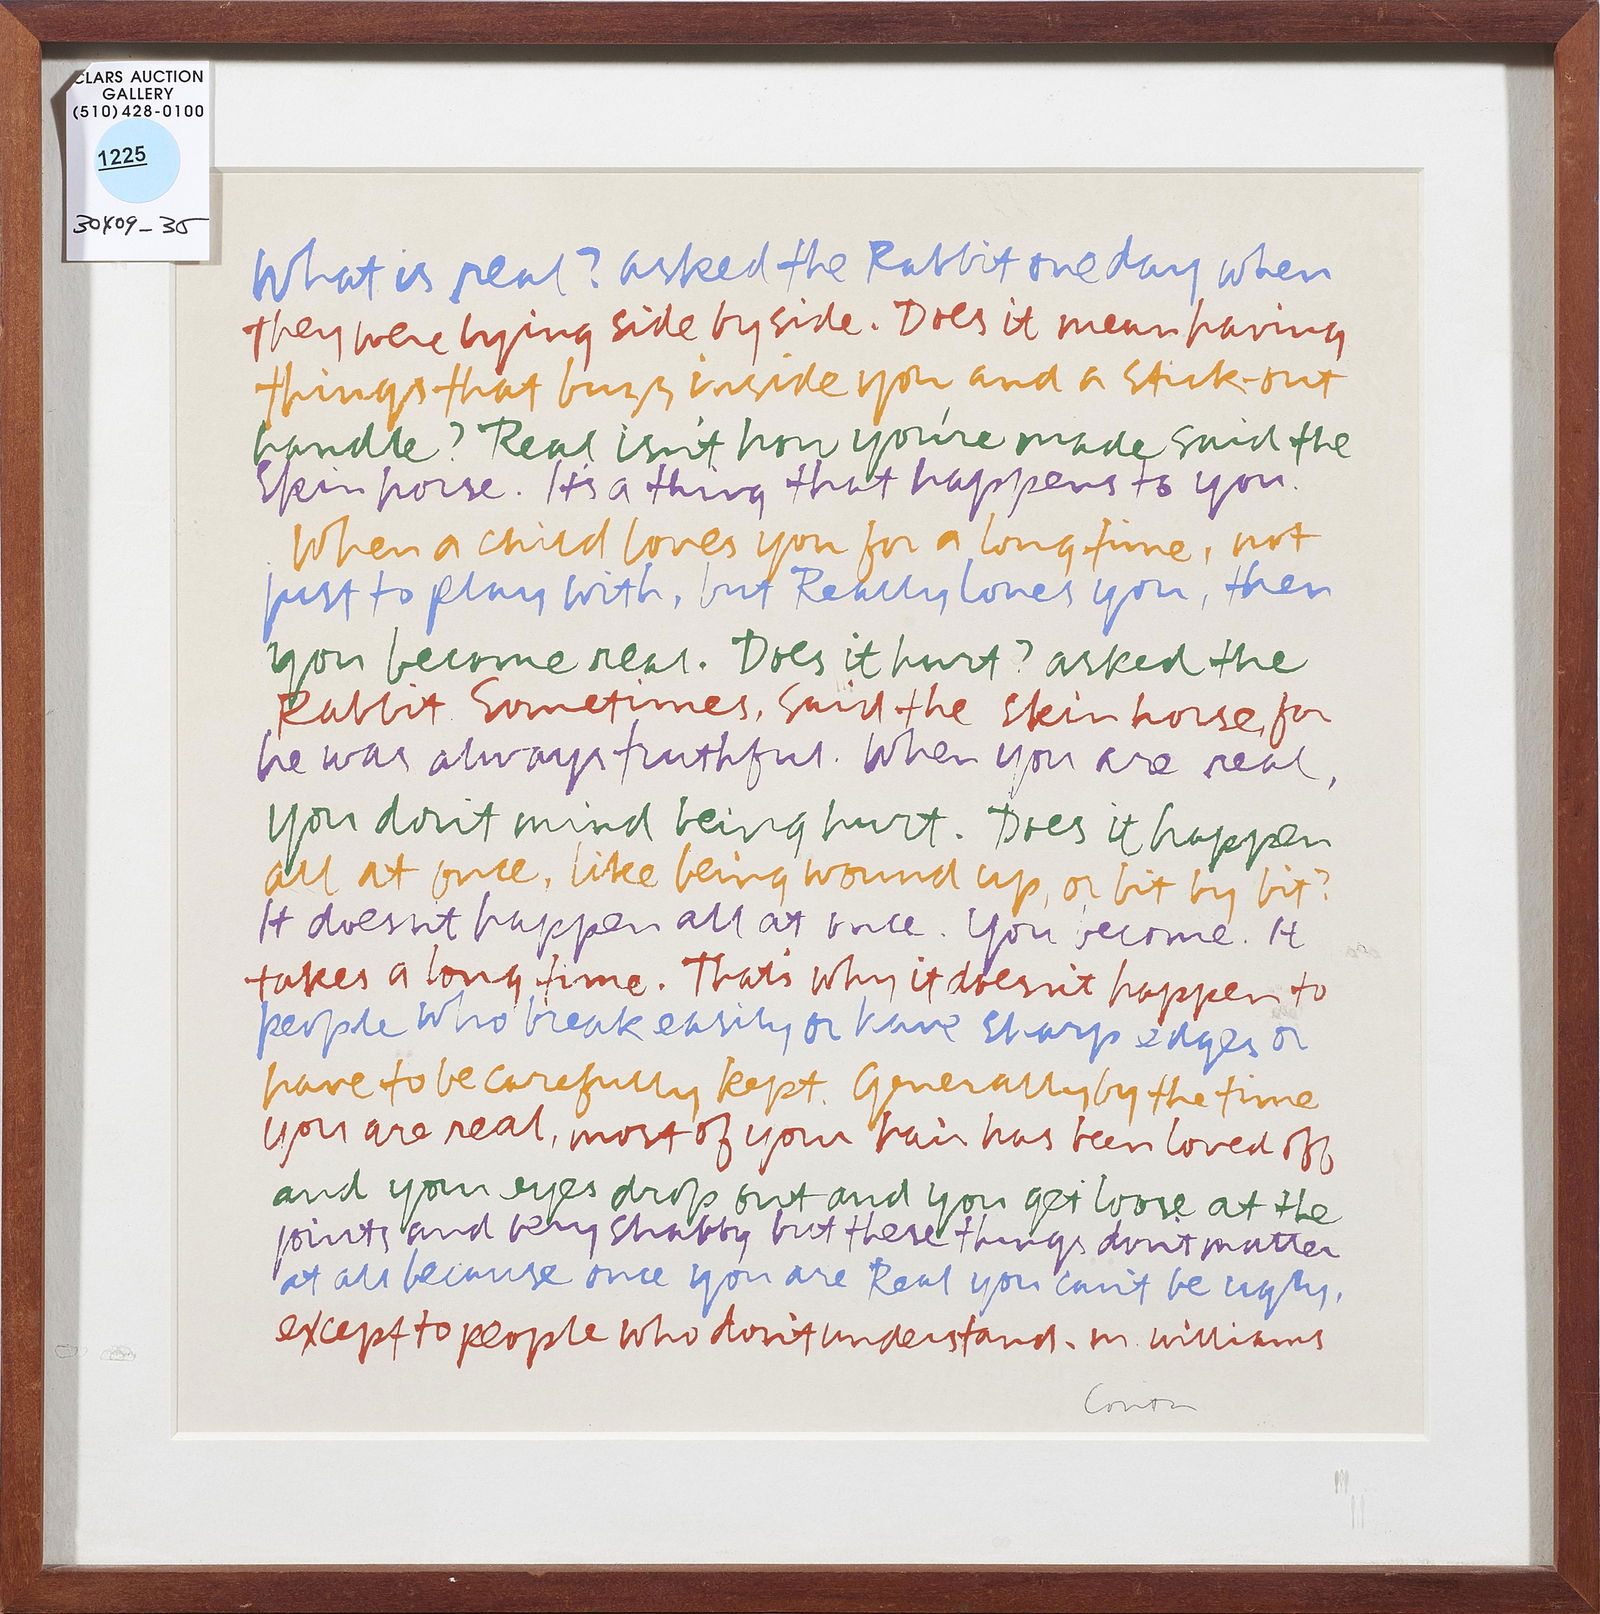 CLARS AUCTION
GALLERY
(510)428-0100
1225
30409-35
What is real? asked the Rabbit one day when
they were lying side by side. Does it mean having
things that buzz inside you and a stick-out
handle? Real isn't how you're made said the
Skin horse. It's a thing that happens to you.
When a child loves you for a long time, not
just to play with, but Really loves you, then
you become real. Does it hurt? asked the
Rabbit. Sometimes, said the skin horse, for
he was always truthful. When you are real,
you don't mind being hurt. Does it happen
all at once, like being wound up, or bit by bit?
It doesn't happen all at once. You become. It
takes a long time. That's why it doesn't happen to
people who break easily or have sharp edges or
have to be carefully kept. Generally by the time
you are real, most of your hair has been loved off
and your eyes drop out and you get loose at the
joints and very shabby but these things don't matter
at all because once you are Real you can't be ugly,
except to people who don't understand. m. williams
Corita